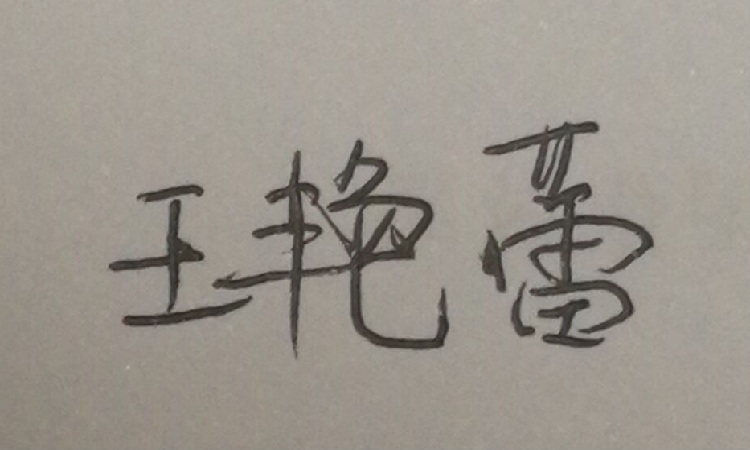 王艳蕾